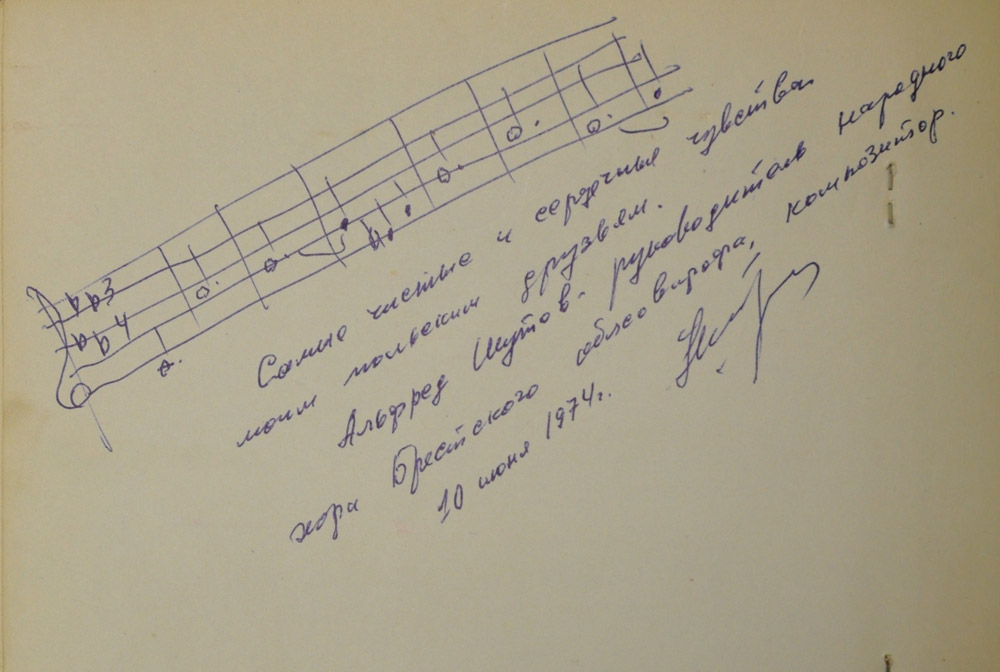 3
4
Самые чистые и сердечные чувства
моим польским друзьям.
Альфред Шутов. руководитель народного
хора Брестского облсовпрофа, композитор.
10 июня 1974г.